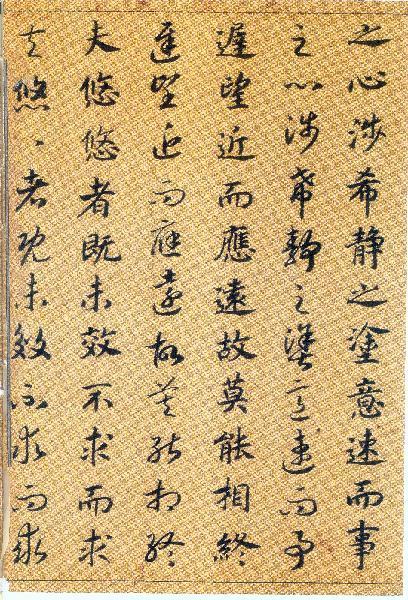 之心涉希静之塗意速而事
之心涉希静之塗意速而事
遲望近而應遠故莫能相終
遲望近而應遠故莫能相終
夫悠悠者既未效不求而求
夫悠〻者既未效不求而求